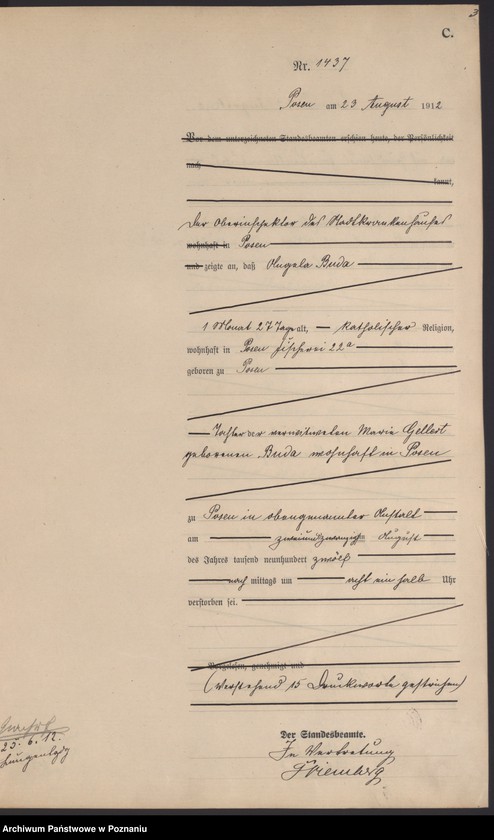 3
C.
Nr. 1437
Posen am 23 August 1912
Vor dem unterzeichneten Standesbeamten erschien heute, der Persönlichkeit
nach
kannt,
Der Oberinspektor des Stadtkrankenhauses
wohnhaft in Posen
und zeigte an, daß Angela Buda
1 Monat 27 Tage alt, katholischer Religion,
wohnhaft in Posen Fischerei 22a
geboren zu Posen
Tochter der verwitweten Marie Gellert
geborenen Buda wohnhaft in Posen
zu Posen in obengenannter Anstalt
am zweiundzwanzigsten August
des Jahres tausend neunhundert zwölf
nach mittags um acht ein halb Uhr
verstorben sei.
Vorgelesen, genehmigt und
(Vorstehend 15 Druckworte gestrichen)
Der Standesbeamte.
In Vertretung
25. 6. 12.
Archiwum Państwowe w Poznaniu